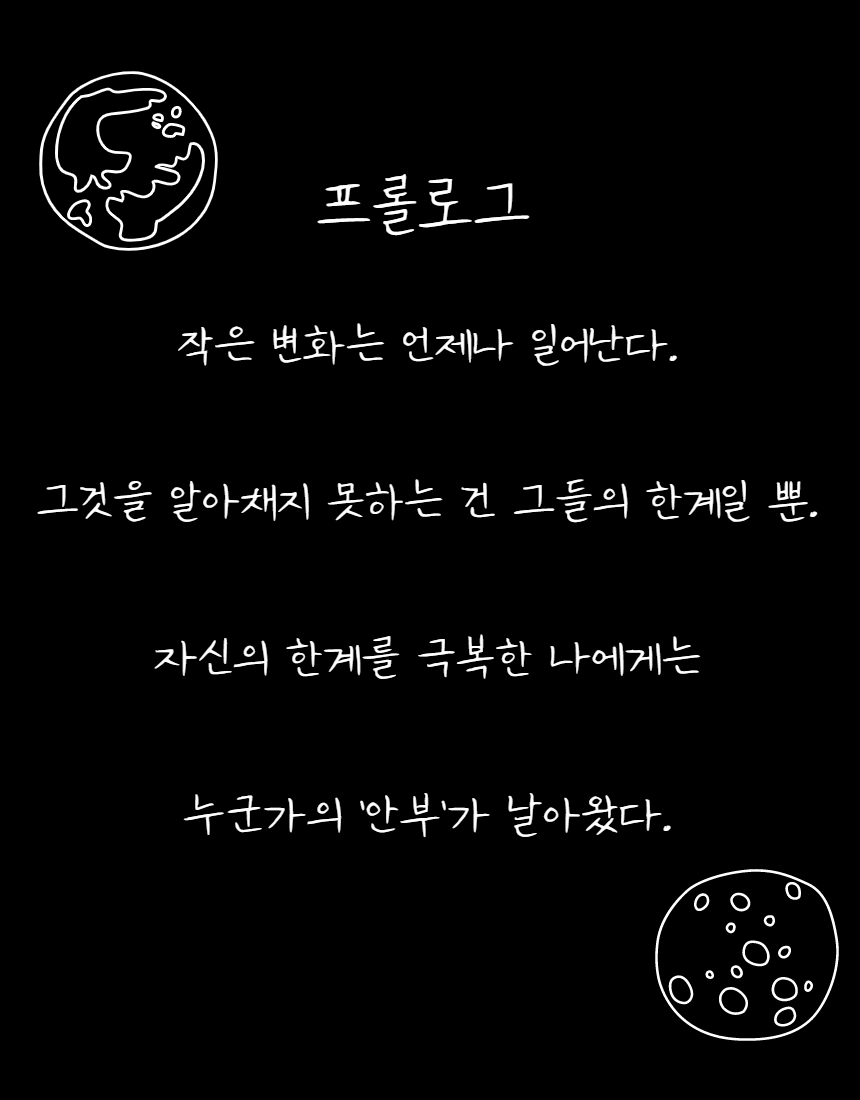 프롤로그
작은 변화는 언제나 일어난다.
그것을 알아채지 못하는 건 그들의 한계일 뿐.
자신의 한계를 극복한 나에게는
누군가의 '안부'가 날아왔다.